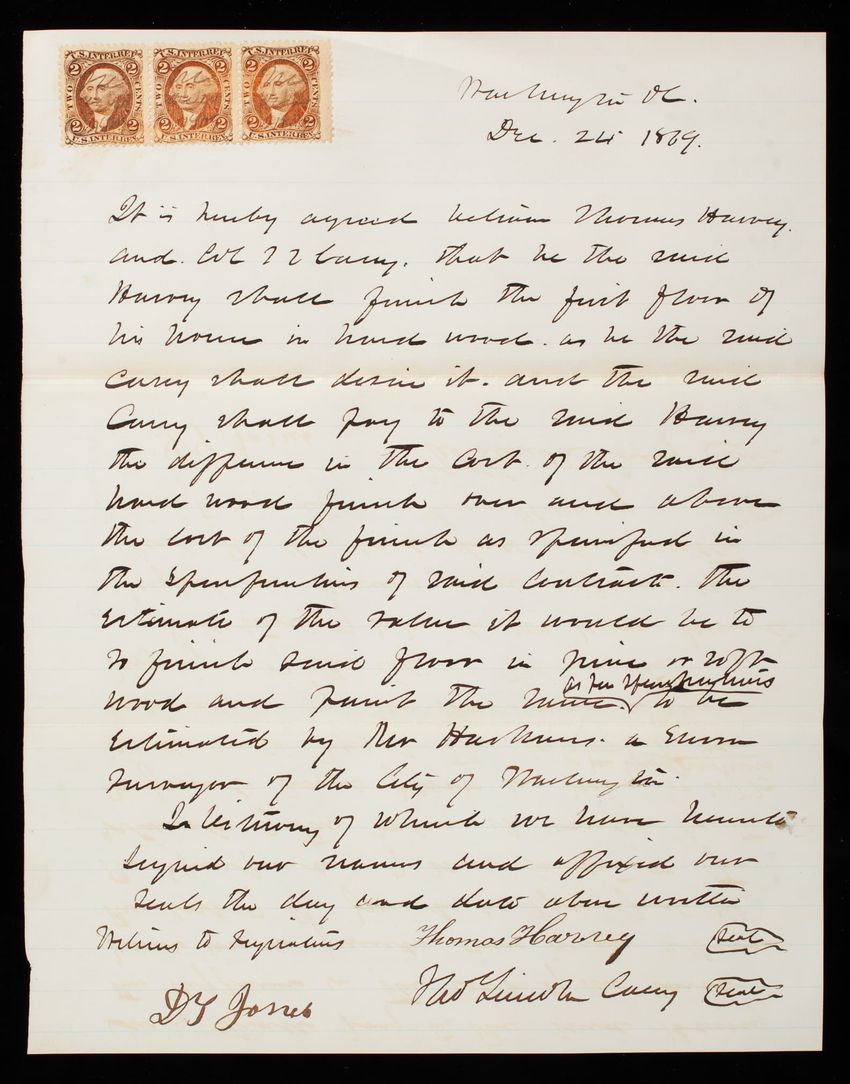 U.S. INTER. REV. U.S. INTER. REV. U.S. INTER. REV.
2 2 2 2 2 2
TWO CENTS TWO CENTS TWO CENTS
2 2 2 2 2 2
U.S. INTER. REV. U.S. INTER. REV. U.S. INTER. REV.
Washington DC.
Dec. 24 1869.
It is hereby agreed between Thomas Harvey.
and. Col T L Casey. that he the said
Harvey shall finish the first floor of
his house in hard wood. as he the said
Casey shall desire it. and the said
Casey shall pay to the said Harvey
the difference in the cost. of the said
hard wood finish over and above
the cost of the finish as specified in
the specifications of said contract. The
estimate of the value it would be to
to finish said floor in pine or soft
as per specifications
wood and paint the same to be
estimated by Mr Harkness. a
surveyor of the City of Washington.
In testimony of which we have hereunto
signed our names and affixed our
seals the day and date above written
Witness to signatures Thomas Harvey Seal
Thos Lincoln Casey Seal
D T Jones